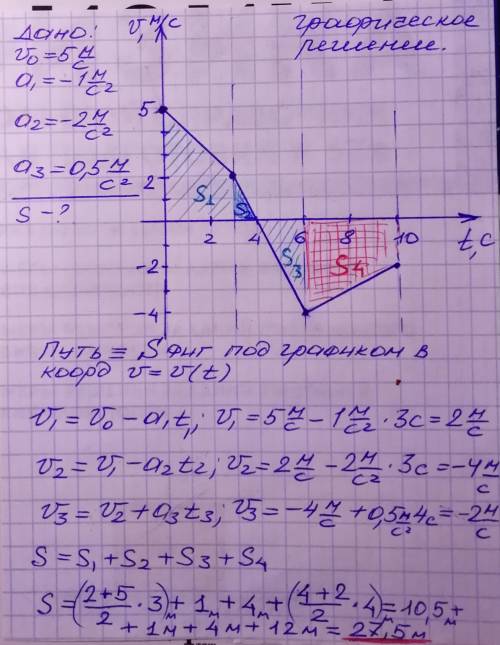 Дано:
v₀=5 м/с
a₁=-1 м/с²
a₂=-2 м/с²
a₃=0,5 м/с²
S-?
v, м/с
графическое
решение.
5
2
-2
-4
2 4 6 8 10
t, с
S₁
S₂
S₃
S₄
Путь ≡ Sфиг под графиком в
коорд v=v(t)
v₁=v₀-a₁t₁; v₁=5 м/с - 1 м/с² · 3с = 2 м/с
v₂=v₁-a₂t₂; v₂=2 м/с - 2 м/с² · 3с = -4 м/с
v₃=v₂+a₃t₃; v₃=-4 м/с + 0,5 м/с² 4с = -2 м/с
S=S₁+S₂+S₃+S₄
S=((2+5)/2 · 3)м + 1м + 4м + ((4+2)/2 · 4)м = 10,5м +
+ 1м + 4м + 12м = 27,5м